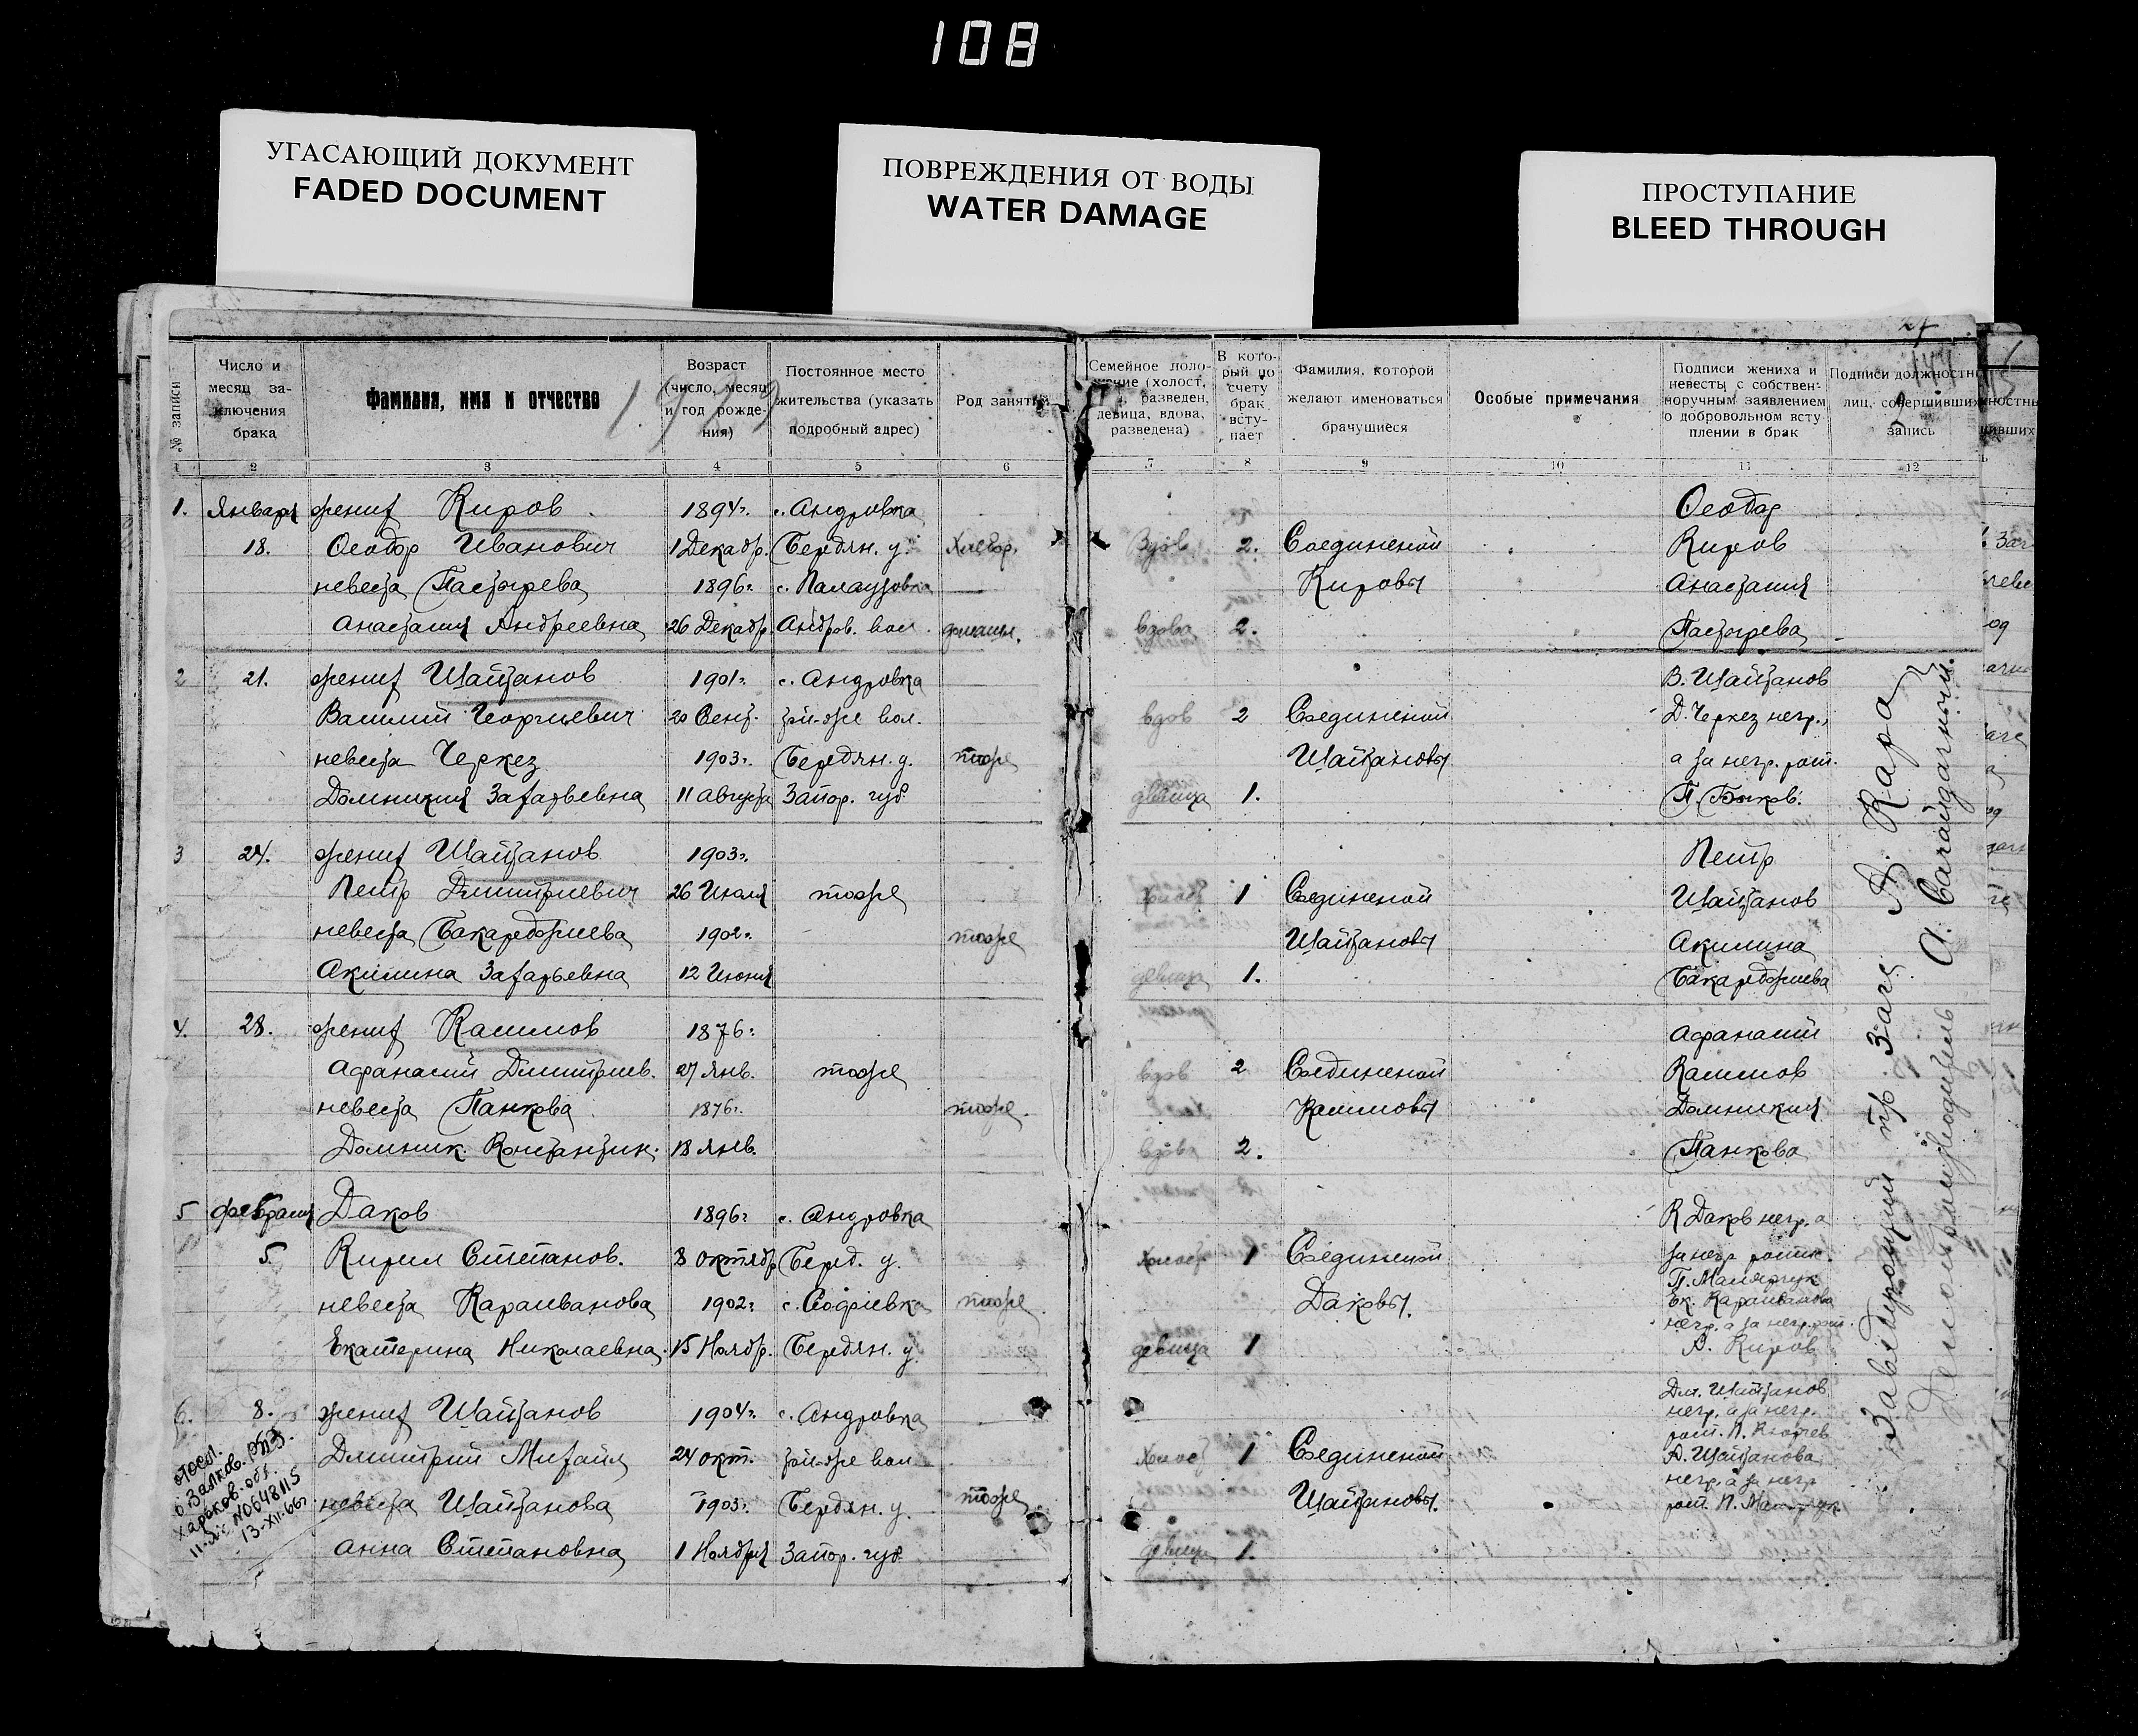 108
УГАСАЮЩИЙ ДОКУМЕНТ
FADED DOCUMENT
ПОВРЕЖДЕНИЯ ОТ ВОДЫ
WATER DAMAGE
ПРОСТУПАНИЕ
BLEED THROUGH
№ записи
Число и месяц заключения брака
Фамилия, имя и отчество
Возраст (число, месяц и год рождения)
Постоянное место жительства (указать подробный адрес)
Род занятий
Семейное положение (холост, разведен, девица, вдова, разведена)
В который по счету брак вступает
Фамилия, которой желают именоваться брачущиеся
Особые примечания
Подписи жениха и невесты с собственноручным заявлением о добровольном вступлении в брак
Подписи должностн лиц, совершивших запись
1 2 3 4 5 6 7 8 9 10 11 12
1. Января жених Киров 1894г. с. Андровка Феодор
18. Феодор Иванович 1 Декабр. Бердян. у. Хлебор. Вдов 2. Соединеной Киров
невеста Пастырева 1896г. с. Палаузовка Кировы Анастасия
Анастасия Андреевна 26 Декабр. Андров. вол. вдова 2. Пастырева
2 21. жених Шайтанов 1901г. с. Андровка В. Шайтанов
Василий Георгиевич 20 Сент. той-же вол. вдов 2 Соединеной Д. Черкез негр.,
невеста Черкез 1903г. Бердян. у. тоже Шайтановы а за негр. росп.
Домникия Захарьевна 11 Августа Запор. губ. девица 1. П. Быков.
3 24. жених Шайтанов 1903г. Петр
Петр Дмитриевич 26 Июля тоже Холост 1 Соединеной Шайтанов
невеста Бакарджиева 1902г. тоже Шайтановы Акилина
Акилина Захарьевна 12 Июня девица 1. Бакарджиева
4. 28. жених Калинов 1876г. Афанасий
Афанасий Дмитриев. 27 Янв. тоже вдов 2 Соединеной Калинов
невеста Панкова 1876г. тоже. Калиновы Домникия
Домник. Константин. 18 Янв. вдова 2. Панкова
5 февраля Даков 1896г с. Андровка К Даков негр. а
5. Кирил Степанов. 8 октябр Берд. у. Холост 1 Соединеной за негр росп.
невеста Караиванова 1902г с. Софиевка тоже Даковы. Ек. Караиванова
негр. а за негр. росп.
Екатерина Николаевна 15 Ноябр. Бердян. у. девица 1 А. Киров
6. 8. жених Шайтанов 1904г. с. Андровка Дм. Шайтанов
негр. а за негр.
Дмитрий Михайл 24 окт. той-же вол Холост 1 Соединеной А. Шайтанова
негр. а за негр
невеста Шайтанова 1903г. Бердян. у. тоже Шайтановы.
Анна Степановна 1 Ноября Запор. губ девица 1.
Харьков. обл.
№0648115
13-XII-66г
Заведующий А. Кара
Делопроизводитель